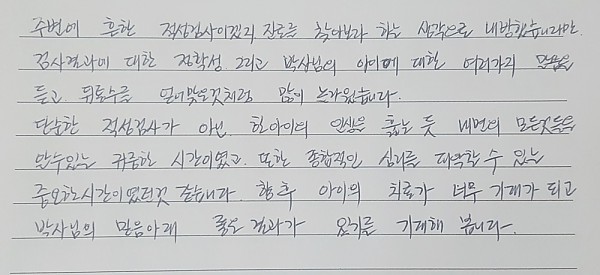 주변에 흔한 적성검사이겠지 진로를 찾아보자 하는 생각으로 내방했습니다만.
검사결과에 대한 정확성 그리고 박사님의 아이에 대한 여러가지 말씀을
듣고 뒤통수를 얻어맞은것처럼 많이 놀라웠습니다.
단순한 적성검사가 아닌, 한아이의 인생을 훑는 듯 내면의 모든것들을
알수있는 귀중한 시간이였고. 또한 종합적인 심리를 파악할 수 있는
중요한시간이였던것 같습니다. 향후 아이의 치료가 너무 기대가 되고
박사님의 믿음아래 좋은결과가 오기를 기대해 봅니다.